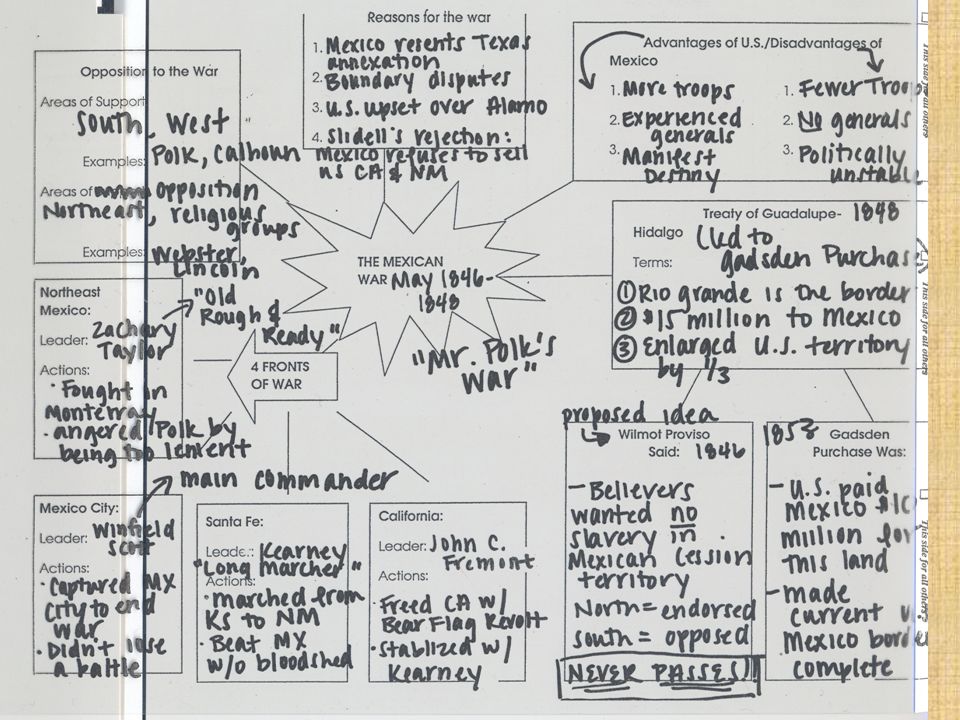 Opposition to the War
Areas of Support
South, West
Examples: Polk, Calhoun
Areas of opposition
Northeast, religious
groups
Examples: Webster,
Lincoln
Reasons for the war
1. Mexico resents Texas
annexation
2. Boundary disputes
3. U.S. upset over Alamo
4. Slidell's rejection:
Mexico refuses to sell
us CA & NM
Advantages of U.S./Disadvantages of
Mexico
1. More troops
2. Experienced
generals
3. Manifest
Destiny
1. Fewer Troop
2. No generals
3. Politically
unstable
THE MEXICAN
WAR May 1846-
1848
"Mr. Polk's
War"
Treaty of Guadalupe- 1848
Hidalgo
Led to
Gadsden Purchase
Terms:
① Rio grande is the border
② $15 million to Mexico
③ Enlarged U.S. territory
by 1/3
4 FRONTS
OF WAR
Northeast
Mexico:
Leader: Zachary
Taylor
"Old
Rough &
Ready"
Actions:
· Fought in
Monterray
· angered Polk by
being too lenient
Mexico City:
main commander
Leader: Winfield
Scott
Actions:
· Captured MX
City to end
war
· Didn't lose
a battle
Santa Fe:
Leader: Kearney
"Long marcher"
Actions:
· marched from
KS to NM
· Beat MX
w/o bloodshed
California:
Leader: John C.
Fremont
Actions:
· Freed CA w/
Bear Flag Revolt
· Stablized w/
Kearney
proposed idea
Wilmot Proviso
Said: 1846
- Believers
wanted no
slavery in
Mexican Cession
territory
North = endorsed
South = opposed
NEVER PASSES!!
1853 Gadsden
Purchase Was:
- U.S. paid
Mexico $10
million for
this land
- made
current
Mexico border
complete
This side for all others
This side for all others
This side for all others